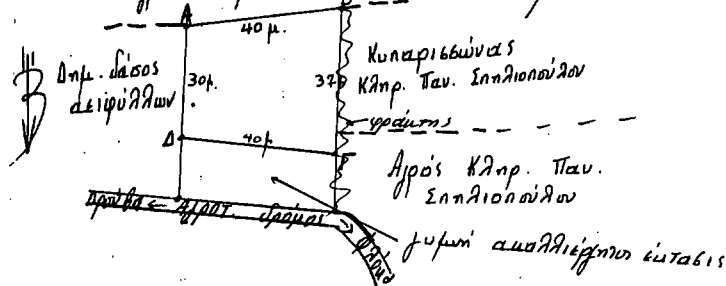 40 μ.
Δημ. δάσος
αειφύλλων
30μ.
37
Κυπαρισσώνας
Κληρ. Παν. Σπηλιοπούλου
φράκτης
Δ
40μ
Γ
Αγρός Κληρ. Παν.
Σπηλιοπούλου
← Αγροτ. δρόμος →
γυμνή ακαλλιέργητος έκτασις